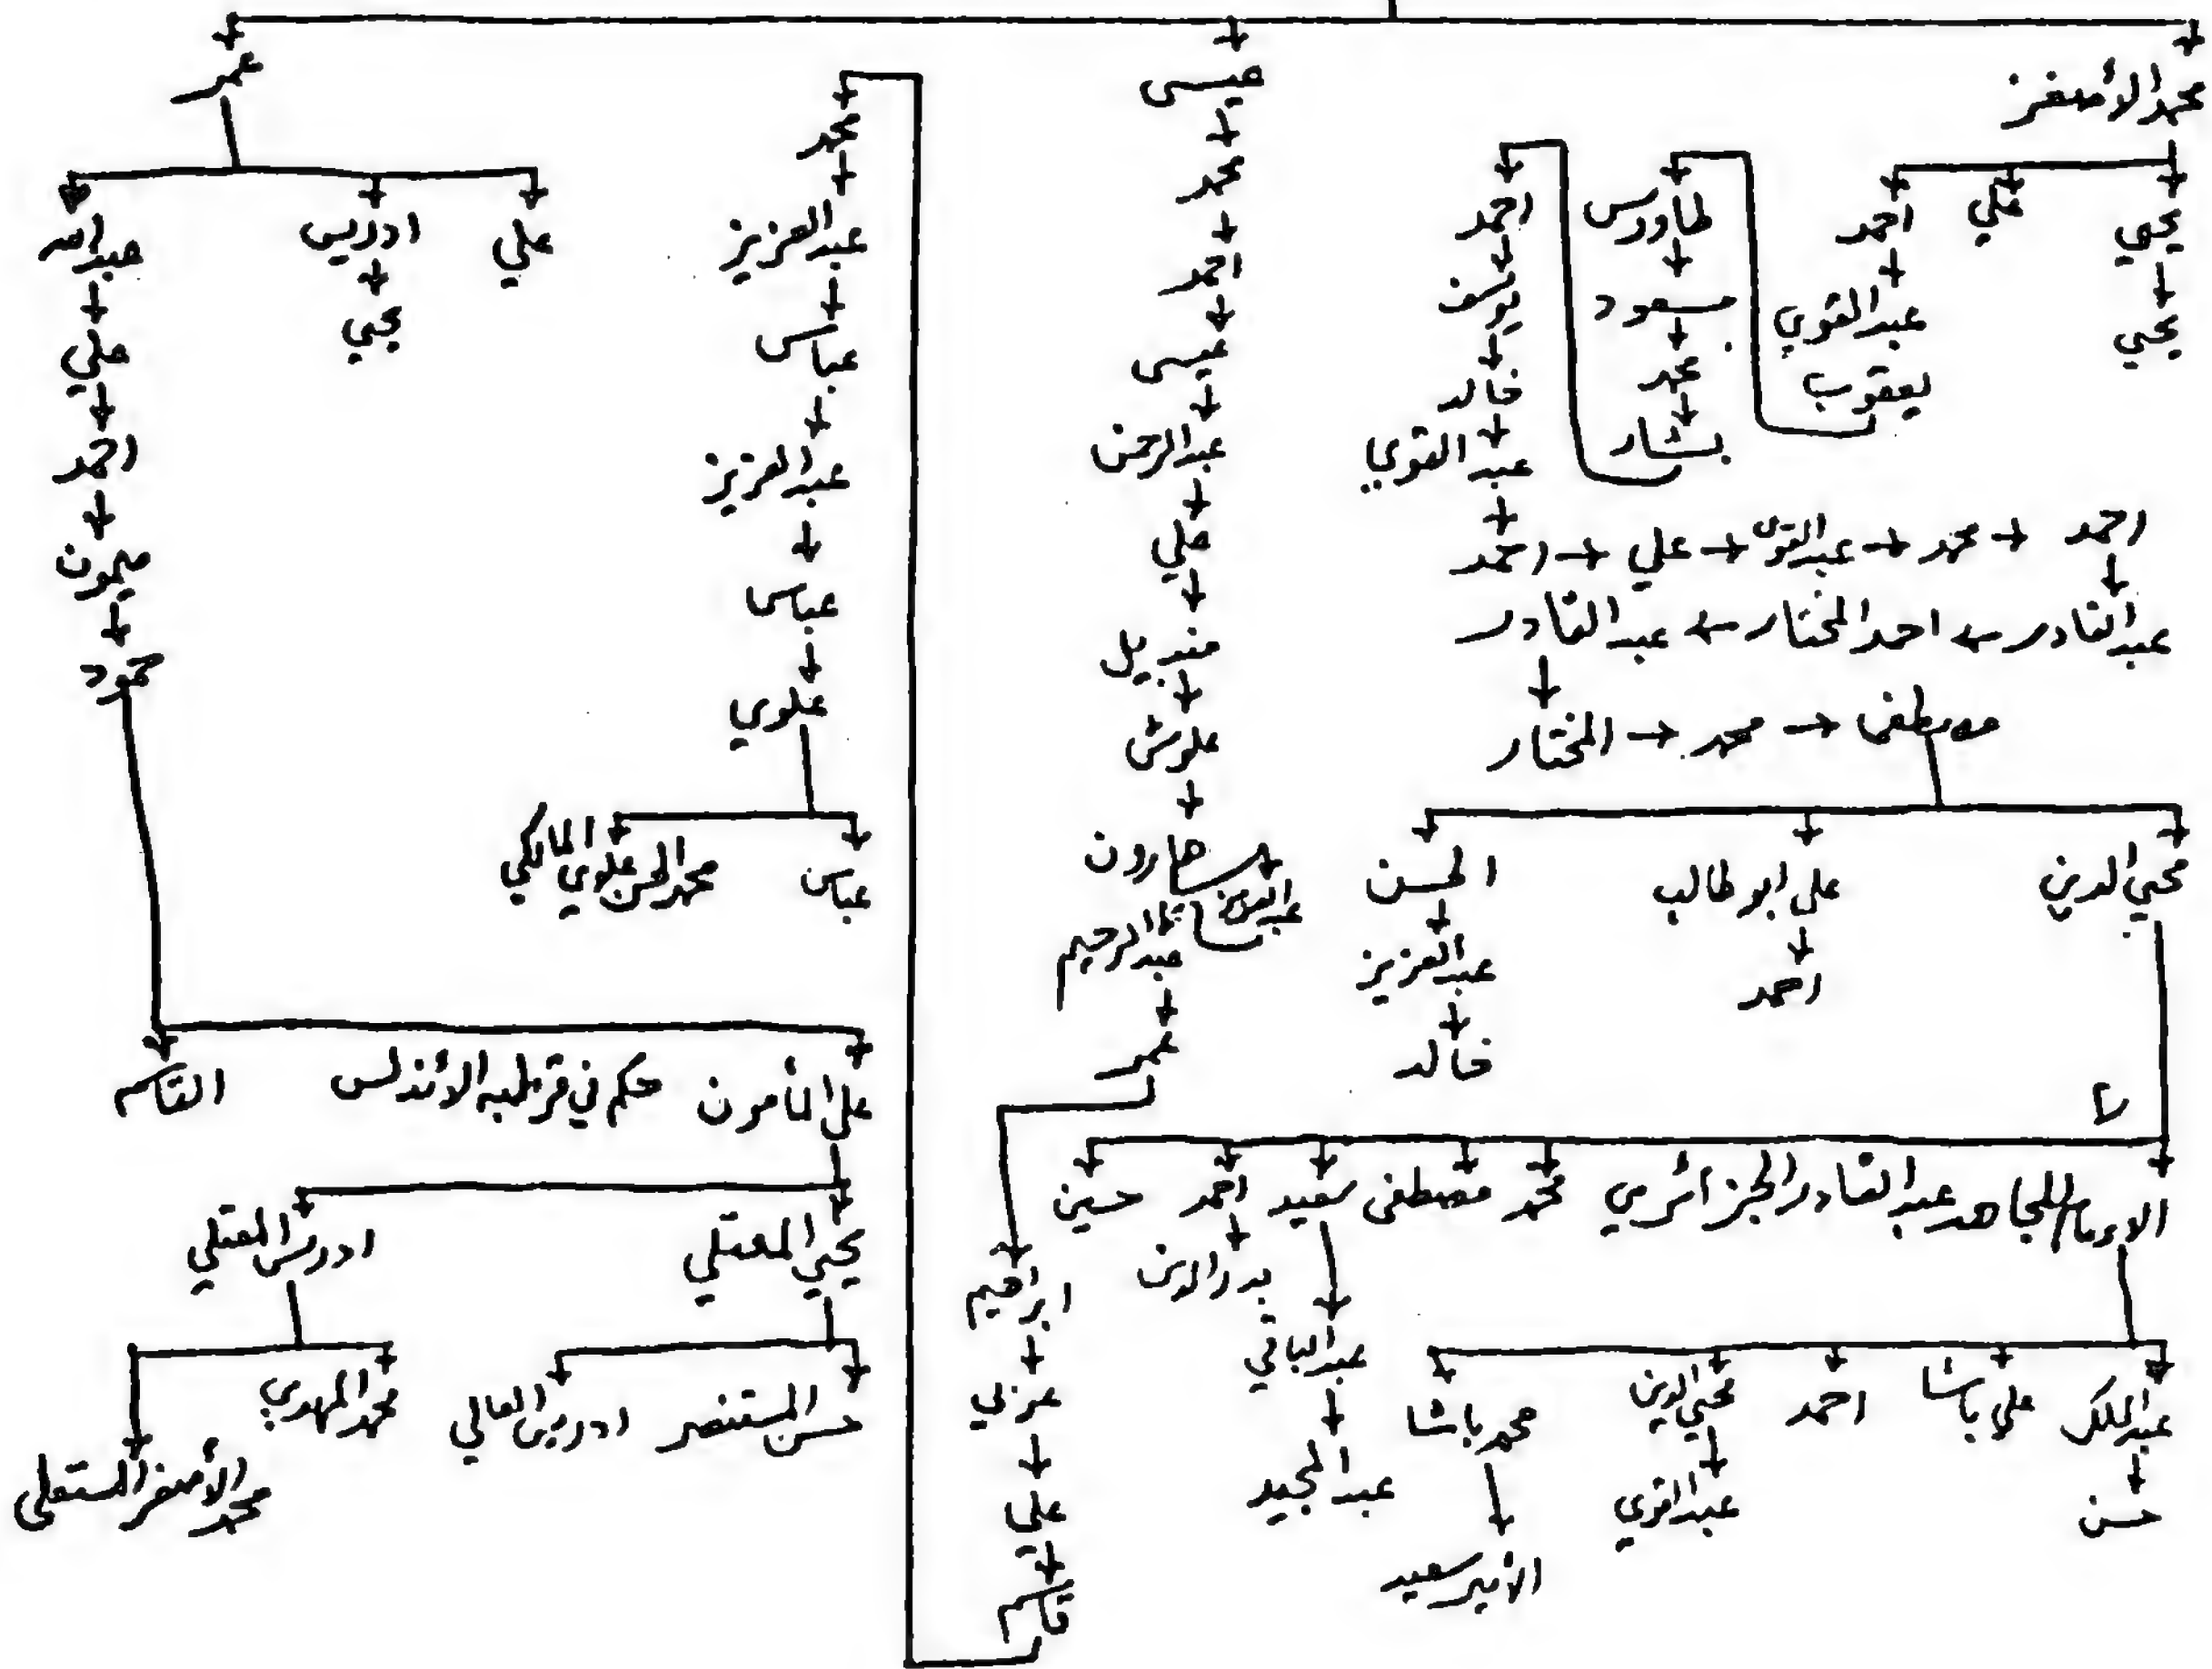 محمد الأصغر
يحيى
يحيى
علي
احمد
عبد القوي
يعقوب
طاووس
مسعود
محمد
بشار
احمد
يوسف
خالد
عبد القوي
احمد → علي → عبد القوي → محمد → احمد
عبد القادر ← احمد المختار ← عبد القادر
المختار → محمد → مصطفى
محيي الدين
علي ابو طالب
احمد
الحسن
عبد العزيز
خالد
الامام المجاهد عبد القادر الجزائري
محمد
مصطفى
سعيد
عبد الباقي
عبد المجيد
احمد
بدر الدين
حسين
عبد الملك
حسن
علي باشا
احمد
محيي الدين
عبد القوي
محمد باشا
الأمير سعيد
عيسى
محمد
احمد
عيسى
عبد الرحمن
علي
منديل
علوش
هارون
عبد العزيز
عبد الرحيم
عمر
ابراهيم
عربي
علي
قاسم
محمد
عبد العزيز
عباس
عبد العزيز
عباس
علوي
عباس
محمد الحسن علوي المالكي
عمر
علي
ادريس
يحيي
عبد الله
علي
احمد
ميمون
حمود
علي المأمون حكم في قرطبه الأندلس
القاسم
يحيي المعتلي
حسن المستنصر
ادريس العالي
ادريس المعتلي
محمد المهدي
محمد الأصغر المستعلي